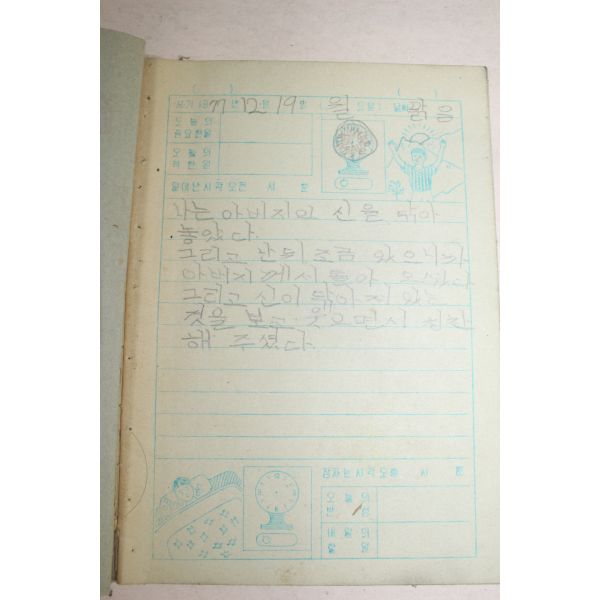 (    )    (    )
서기 1977년 12월 19일 (월 요일) 날씨 맑음
오늘의
중요한일
오늘의
착한일
일어난시각 오전 시 분
나는 아버지의 신을 닦아
놓았다.
그리고 난뒤 조금 있으니까
아버지께서 돌아 오셨다
그리고 신이 닦아져 있는
것을 보고 웃으면서 칭찬
해 주셨다.
잠자는시각 오후 시 분
오늘의
반성
내일의
할일